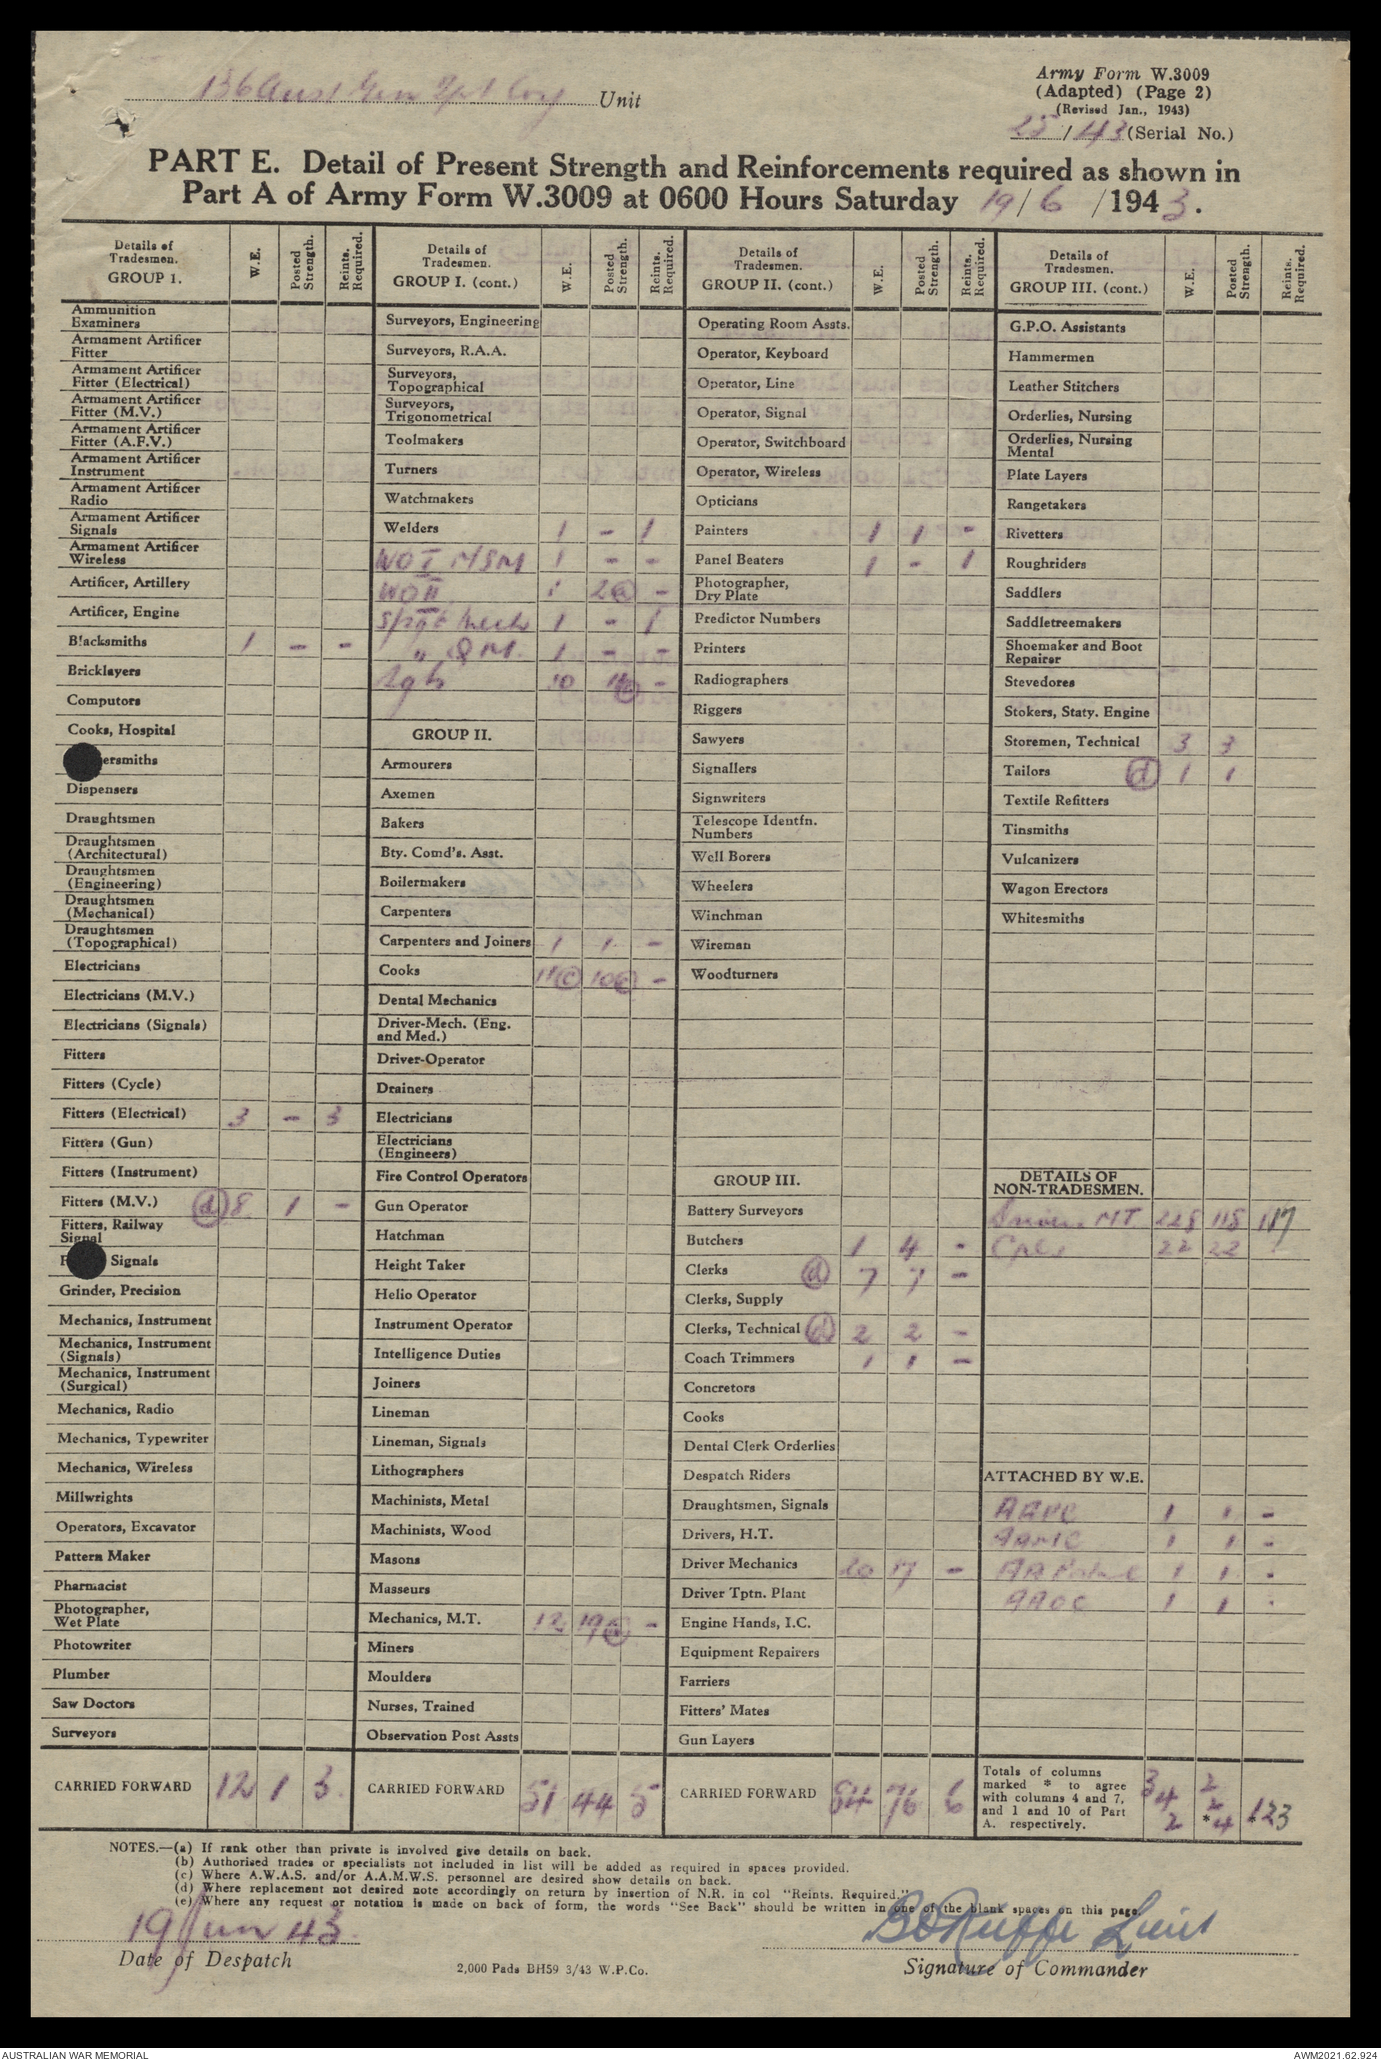 136 Aust Gen Tpt Coy Unit
Army Form W.3009
(Adapted) (Page 2)
(Revised Jan., 1943)
25/43 (Serial No.)
PART E. Detail of Present Strength and Reinforcements required as shown in
Part A of Army Form W.3009 at 0600 Hours Saturday 19/6/1943.
Details of Tradesmen. GROUP 1. W.E. Posted Strength. Reints. Required.
Ammunition Examiners
Armament Artificer Fitter
Armament Artificer Fitter (Electrical)
Armament Artificer Fitter (M.V.)
Armament Artificer Fitter (A.F.V.)
Armament Artificer Instrument
Armament Artificer Radio
Armament Artificer Signals
Armament Artificer Wireless
Artificer, Artillery
Artificer, Engine
Blacksmiths 1 - -
Bricklayers
Computors
Cooks, Hospital
ersmiths
Dispensers
Draughtsmen
Draughtsmen (Architectural)
Draughtsmen (Engineering)
Draughtsmen (Mechanical)
Draughtsmen (Topographical)
Electricians
Electricians (M.V.)
Electricians (Signals)
Fitters
Fitters (Cycle)
Fitters (Electrical) 3 - 3
Fitters (Gun)
Fitters (Instrument)
Fitters (M.V.) (d) 8 1 -
Fitters, Railway Signal
F Signals
Grinder, Precision
Mechanics, Instrument
Mechanics, Instrument (Signals)
Mechanics, Instrument (Surgical)
Mechanics, Radio
Mechanics, Typewriter
Mechanics, Wireless
Millwrights
Operators, Excavator
Pattern Maker
Pharmacist
Photographer, Wet Plate
Photowriter
Plumber
Saw Doctors
Surveyors
CARRIED FORWARD 12 1 3
Details of Tradesmen. GROUP I. (cont.) W.E. Posted Strength. Reints. Required.
Surveyors, Engineering
Surveyors, R.A.A.
Surveyors, Topographical
Surveyors, Trigonometrical
Toolmakers
Turners
Watchmakers
Welders 1 - 1
WO I MSM 1 - -
WO II 1 2 (a) -
S/Sgt Mech 1 - 1
" QM. 1 - -
Sgts 10 11 -
GROUP II.
Armourers
Axemen
Bakers
Bty. Comd's. Asst.
Boilermakers
Carpenters
Carpenters and Joiners 1 1 -
Cooks 11 (c) 10 -
Dental Mechanics
Driver-Mech. (Eng. and Med.)
Driver-Operator
Drainers
Electricians
Electricians (Engineers)
Fire Control Operators
Gun Operator
Hatchman
Height Taker
Helio Operator
Instrument Operator
Intelligence Duties
Joiners
Lineman
Lineman, Signals
Lithographers
Machinists, Metal
Machinists, Wood
Masons
Masseurs
Mechanics, M.T. 12 19 -
Miners
Moulders
Nurses, Trained
Observation Post Assts
CARRIED FORWARD 51 44 5
Details of Tradesmen. GROUP II. (cont.) W.E. Posted Strength. Reints. Required.
Operating Room Assts.
Operator, Keyboard
Operator, Line
Operator, Signal
Operator, Switchboard
Operator, Wireless
Opticians
Painters 1 1 -
Panel Beaters 1 - 1
Photographer, Dry Plate
Predictor Numbers
Printers
Radiographers
Riggers
Sawyers
Signallers
Signwriters
Telescope Identfn. Numbers
Well Borers
Wheelers
Winchman
Wireman
Woodturners
GROUP III.
Battery Surveyors
Butchers 1 4 -
Clerks (d) 7 7 -
Clerks, Supply
Clerks, Technical (d) 2 2 -
Coach Trimmers 1 1 -
Concretors
Cooks
Dental Clerk Orderlies
Despatch Riders
Draughtsmen, Signals
Drivers, H.T.
Driver Mechanics 20 17 -
Driver Tptn. Plant
Engine Hands, I.C.
Equipment Repairers
Farriers
Fitters' Mates
Gun Layers
CARRIED FORWARD 84 76 6
Details of Tradesmen. GROUP III. (cont.) W.E. Posted Strength. Reints. Required.
G.P.O. Assistants
Hammermen
Leather Stitchers
Orderlies, Nursing
Orderlies, Nursing Mental
Plate Layers
Rangetakers
Rivetters
Roughriders
Saddlers
Saddletreemakers
Shoemaker and Boot Repairer
Stevedores
Stokers, Staty. Engine
Storemen, Technical 3 3
Tailors (d) 1 1
Textile Refitters
Tinsmiths
Vulcanizers
Wagon Erectors
Whitesmiths
DETAILS OF NON-TRADESMEN.
Drivers MT 228 118 117
Cpls 22 22
ATTACHED BY W.E.
AAPC 1 1 -
AAMC 1 1 -
1 1 -
AAOC 1 1 -
Totals of columns marked * to agree with columns 4 and 7, and 1 and 10 of Part A. respectively. 342 *224 *123
NOTES.—(a) If rank other than private is involved give details on back.
(b) Authorised trades or specialists not included in list will be added as required in spaces provided.
(c) Where A.W.A.S. and/or A.A.M.W.S. personnel are desired show details on back.
(d) Where replacement not desired note accordingly on return by insertion of N.R. in col "Reints. Required."
(e) Where any request or notation is made on back of form, the words "See Back" should be written in one of the blank spaces on this page.
19 Jun 43
Date of Despatch
Lieut
Signature of Commander
2,000 Pads BH59 3/43 W.P.Co.
AUSTRALIAN WAR MEMORIAL
AWM2021.62.924